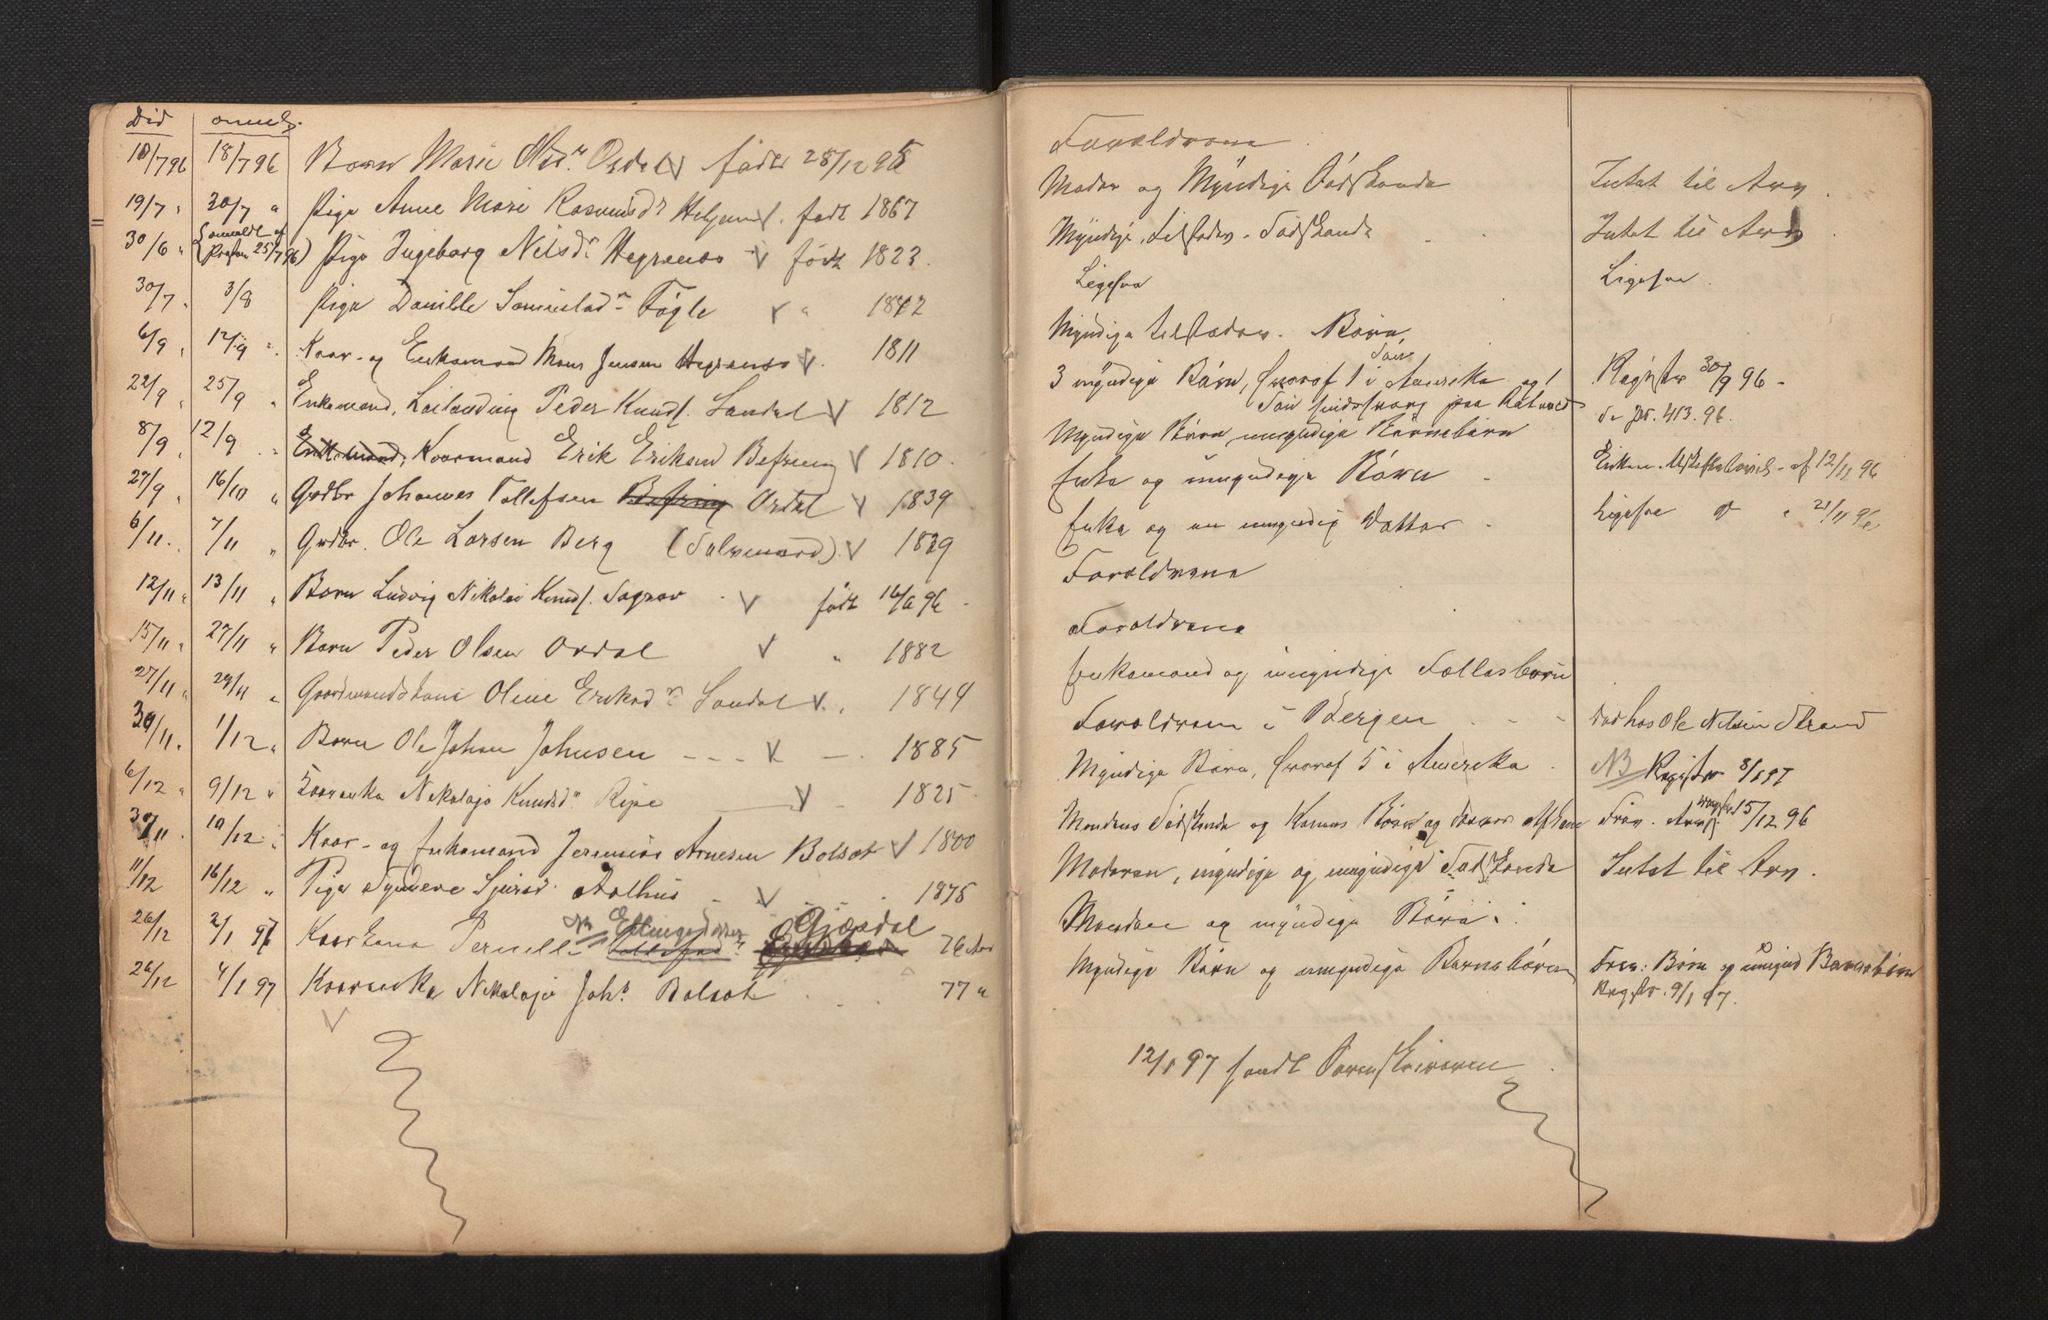 Død anmeldt
10/7 96 18/7 96 Barn Marie Olsdr Ordal V født 28/12 95
19/7 " 30/7 " Pige Anne Marie Rasmusdr Helgens V. født 1867
30/6 " (anmeldt af Præsten 25/7 96) Pige Ingeborg Nilsdr Hegrenes V født 1823.
30/7 " 3/8 Pige Danille Samuelsdr Fögle V " 1842
6/9 " 12/9 ". Kaar- og Enkemand Mons Jensen Hegrenes V. 1811
22/9 " 25/9 " Enkemand, Leilænding Peder Knuds. Sandal V 1812
8/9 " 12/9 " Enkemand, Kaarmand Erik Eriksen Befring V 1810.
27/9 " 16/10 " Grdbr Johannes Tollefsen Befring Ordal V 1839
6/11. 7/11 " Grdbr. Ole Larsen Berg (Selvmord). V 1829
12/11 " 13/11 " Barn Ludvig Nikolai Knuds. Sægrov V født 16/6 96.
15/11 " 27/11 " Barn Peder Olsen Ordal V " 1882
27/11 " 29/11 " Gaardmandskone Oline Eriksdr Sandal V. . 1844
30/11 " 1/12 " Barn Ole Johan Johnsen - - - V - . 1885
6/12 " 9/12 " Kaarenke Nikolaja Knudsdr Ripe V . 1825
30/11. 10/12 " Kaar- og Enkemand Jeremias Arnesen Bolsæt V 1800
11/12 16/12 " Pige Synneve Sjursd. Aalhus V . 1875
26/12 2/1 97 Kaarkone Pernille Ellingsdatter Gjæsdal 76 Aar
26/12 4/1 97 Kaarenke Nikolaja Johs. Bolsæt . . . 77 "
V
Forældrene
Moder og Myndige Södskende Intet til Arv.
Myndige, Södskende Intet til Arv.
Ligesaa Ligesaa.
Myndige tilstede. Børn
3 myndige Børn, hvoraf 1 i Amerika og 1 Registr 30/9 96 -
Søn sindssvag paa Rotvold se jr. 413. 96.
Myndige Børn, umyndige Børnebørn
Enke og umyndige Børn - Enken af 12/11 96
Enke og en umyndig Datter - Ligesaa " 21/11 96
Forældrene
Forældrene
Enkemand og umyndige Fællesbørn
Forældrene i Bergen - - - død hos Ole Nilsen Strand
Myndige Børn, hvoraf 5 i Amerika. NB Registr 8/1 97
Mandens Södskende og Konens Børn og deres Afkom 15/12 96
Moderen, myndige og umyndige Södskende Intet til Arv.
Manden og myndige Børn.
Myndige Børn og umyndige Barnebørn Frav: Børn og umynd Barnebörn
Registr. 9/1 97.
12/1 97 sendt Sorenskriveren